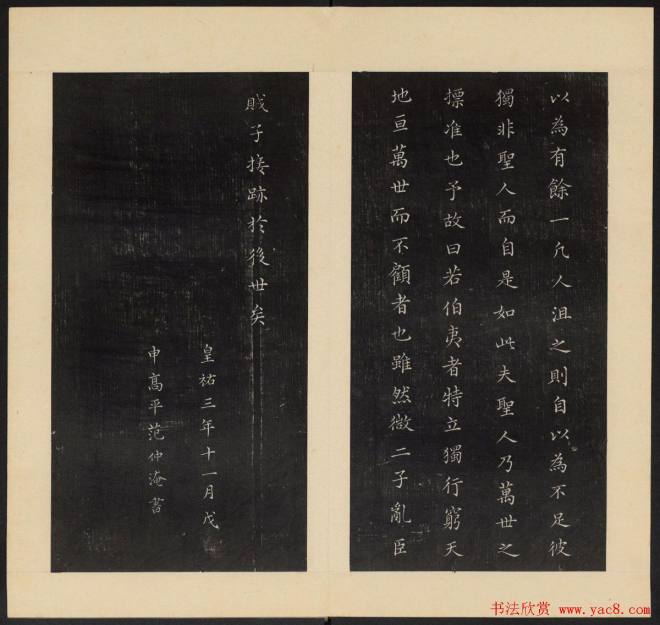 以為有餘一凡人沮之則自以為不足彼
獨非聖人而自是如此夫聖人乃萬世之
摽准也予故曰若伯夷者特立獨行窮天
地亘萬世而不顧者也雖然微二子亂臣
賊子接跡於後世矣
皇祐三年十一月戊
申高平范仲淹書
书法欣赏 www.yac8.com